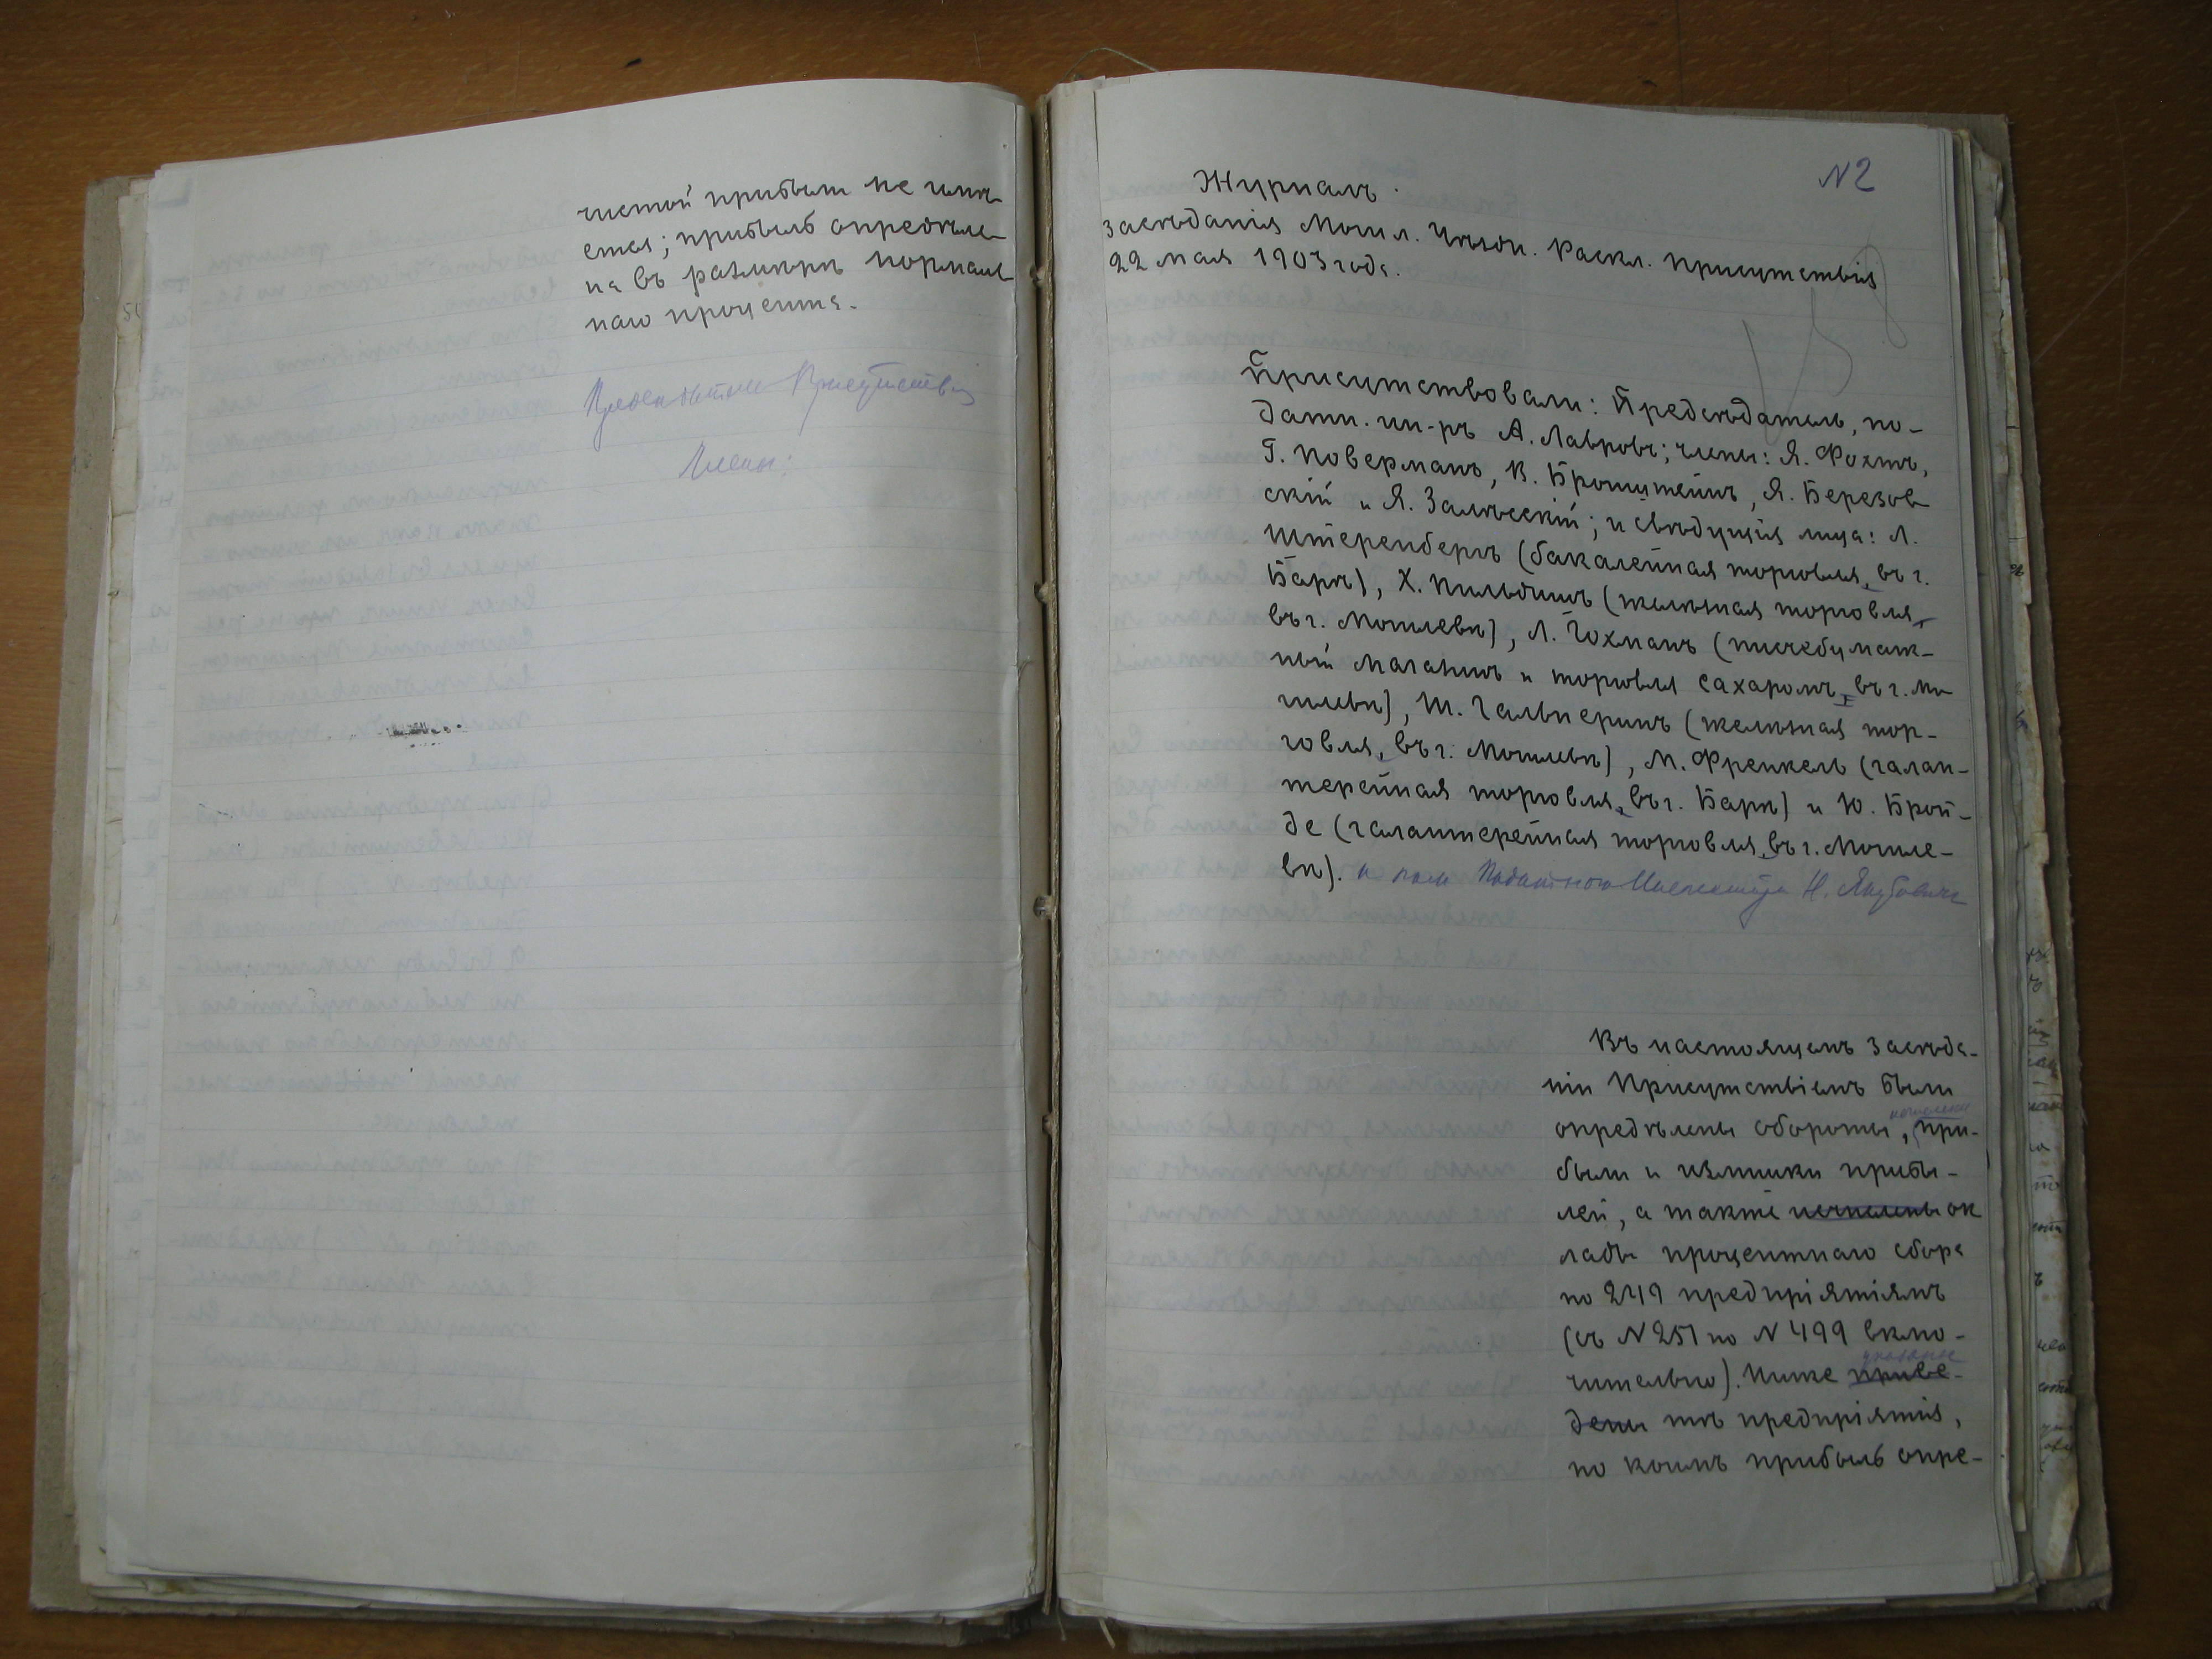 чистой прибыли не имѣ-
ется; прибыль опредѣле-
на въ размѣрѣ нормаль-
наго процента.
Предсѣдатель Присутствія
Члены:
N2
Журналъ
засѣданія Могил. Уѣздн. Раскл. Присутствія
22 мая 1903 года.
Присутствовали: Предсѣдатель, по-
датн. ин-ръ А. Лавровъ; члены: Я. Фохтъ,
Г. Коверманъ, В. Бронштейнъ, Я. Березов-
скій и Я. Залѣсскій; и свѣдущія лица: Л.
Штеренбергъ (бакалейная торговля, въ г.
Барѣ), Х. Кильдишъ (желѣзная торговля,
въ г. Могилевѣ), Л. Гохманъ (писчебумаж-
ный магазинъ и торговля сахаромъ, въ г. Мо-
гилевѣ), Ш. Гальперинъ (желѣзная тор-
говля, въ г. Могилевѣ), М. Френкель (галан-
терейная торговля, въ г. Барѣ) и Ю. Брой-
де (галантерейная торговля, въ г. Могиле-
вѣ). и пом. Податного Инспектора Н. Якубовичъ
Въ настоящемъ засѣда-
ніи Присутствіемъ были
исчислены
опредѣлены обороты, при-
были и излишки прибы-
лей, а также исчислены ок
лады процентнаго сбора
по 249 предпріятіямъ
(съ N 251 по N 499 вклю-
указаны
чительно). Ниже приве-
дены тѣ предпріятія,
по коимъ прибыль опре-